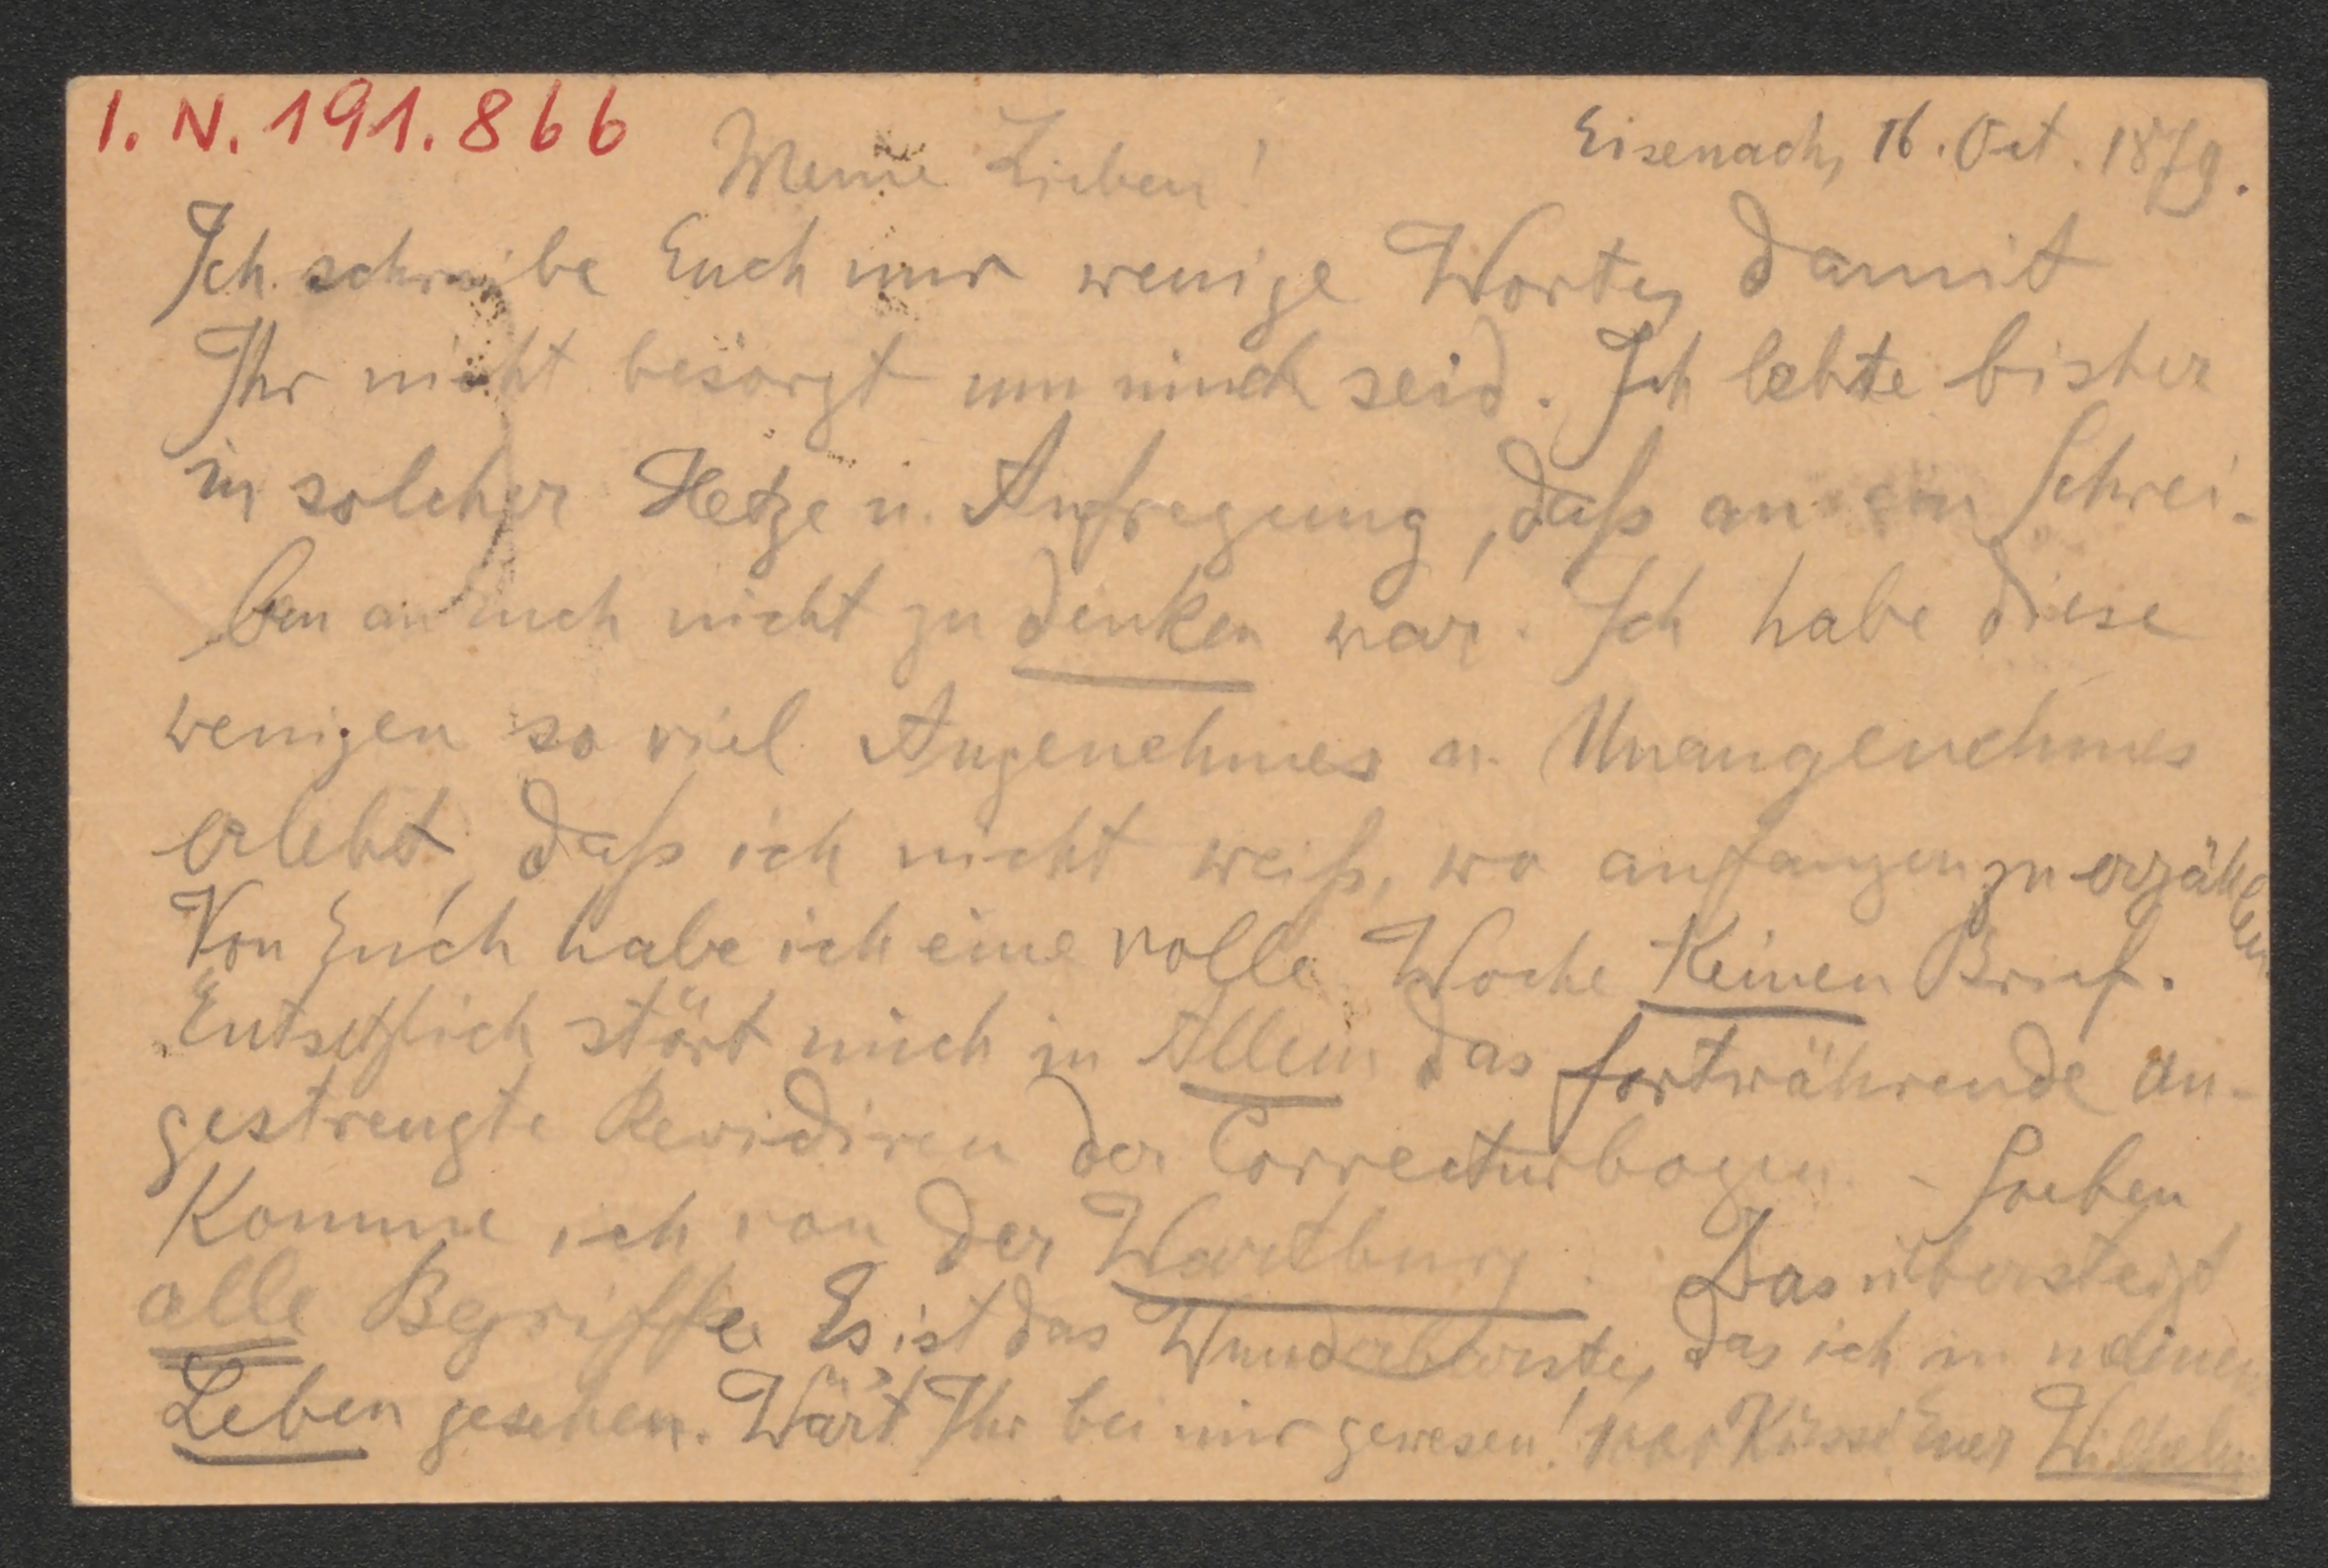 I. N. 191.866
Eisenach, 16. Oct. 1879.
Meine Lieben!
Ich schreibe Euch nur wenige Worte, damit
Ihr nicht besorgt um mich seid. Ich lebte bisher
in solcher Hetze u. Aufregung, daß an ein Schrei-
ben an Euch nicht zu denken war. Ich habe diese
wenigen so viel Angenehmes u. Unangenehmes
erlebt, daß ich nicht weiß, wo anfangen zu erzählen.
Von Euch habe ich eine volle Woche keinen Brief.
Entsetzlich stört mich in Allem das fortwährende an-
gestrengte Revidiren der Correcturbogen. – Soeben
komme ich von der Wartburg. Das übersteigt
alle Begriffe. Es ist das Wunderbarste, das ich in meinem
Leben gesehen. Wär't Ihr bei mir gewesen! 1000 Küsse Euer Wilhelm